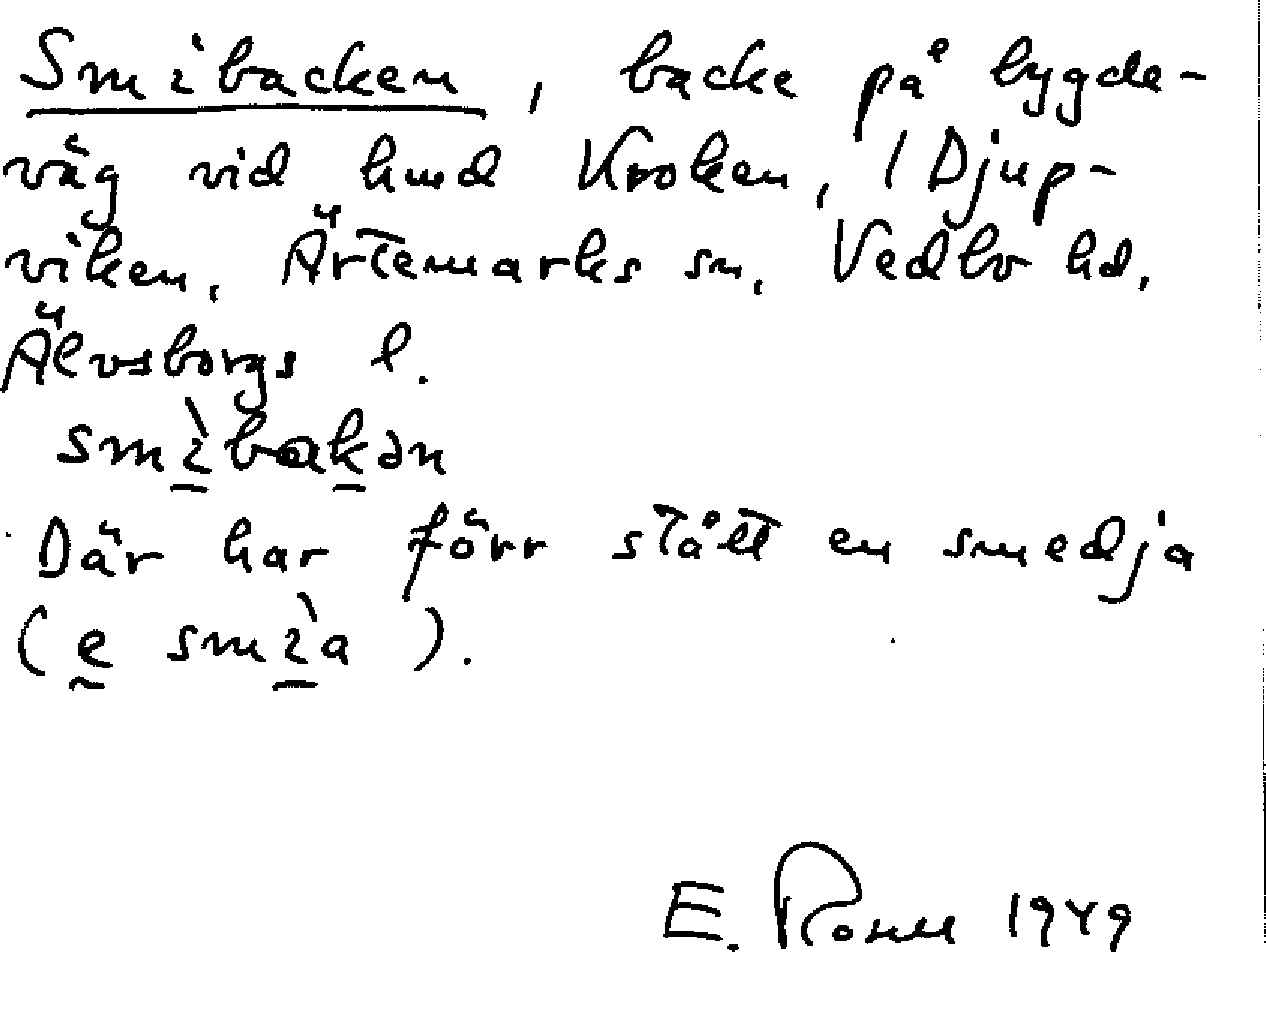 Smibacken, backe på bygde-
väg vid hmd Kroken, 1 Djup-
viken, Ärtemarks sn, Vedbo hd,
Älvsborgs l.
smìbakən
Där har förr stått en smedja
(e smìa).
E. 1949